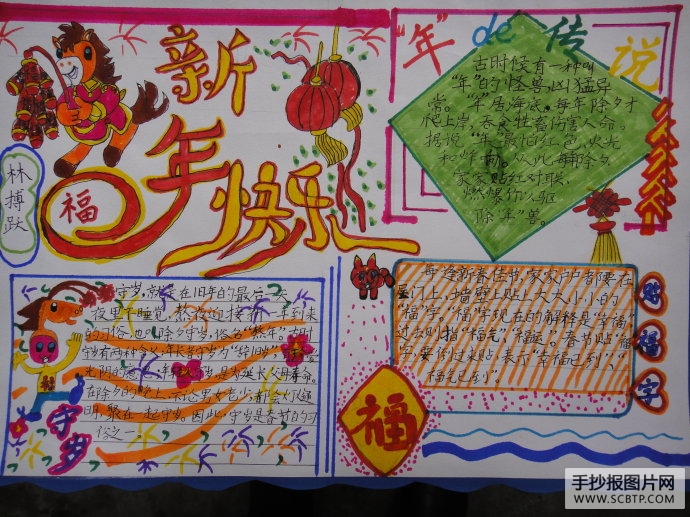 新年快乐
福
林搏跃
"年"de传说
古时候有一种叫
"年"的怪兽,凶猛异
常。"年"居海底,每年除夕才
爬上岸,吞食牲畜伤害人命。
据说"年"最怕红色,火光
和炸响。从此每年除夕
家家贴红对联,
燃爆竹以驱
除"年"兽。
守岁,就是在旧年的最后一天
夜里不睡觉,熬夜迎接新一年到来
的习俗,也叫除夕守岁,俗名"熬年"。古时
守岁有两种含义:年长者守岁为"辞旧岁",
光阴的意思;年轻人守岁是为延长父母寿命。
在除夕的晚上,不论男女老少,都会灯火通
明,聚在一起守岁。因此,守岁是春节的习
俗之一
守岁
每逢新春佳节,家家户户都要在
屋门上,墙壁上贴上大大小小的
"福"字。"福"字现在的解释是"幸福",
过去则指"福气","福运"。春节贴"福"
字,要倒过来贴,表示"幸福已到","
福气已到"。
贴福字
福
手抄报图片网
WWW.SCBTP.COM